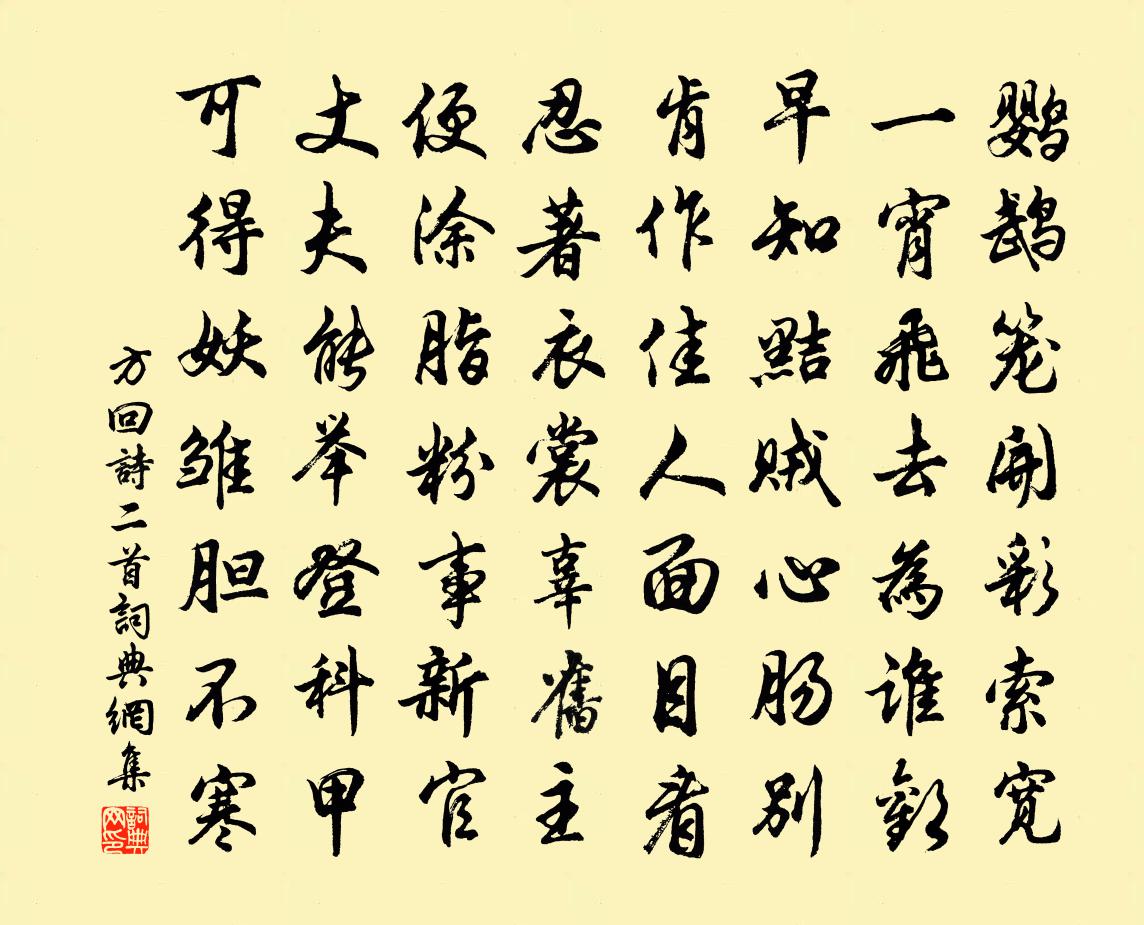 鹦鹉笼開彩索寬
一宵飛去為誰歡
早知黠賊心肠别
肯作佳人面目看
忍著衣裳辜舊主
便涂脂粉事新官
丈夫能举登科甲
可得妖雏胆不寒
方回詩二首詞典網集
詞典网印